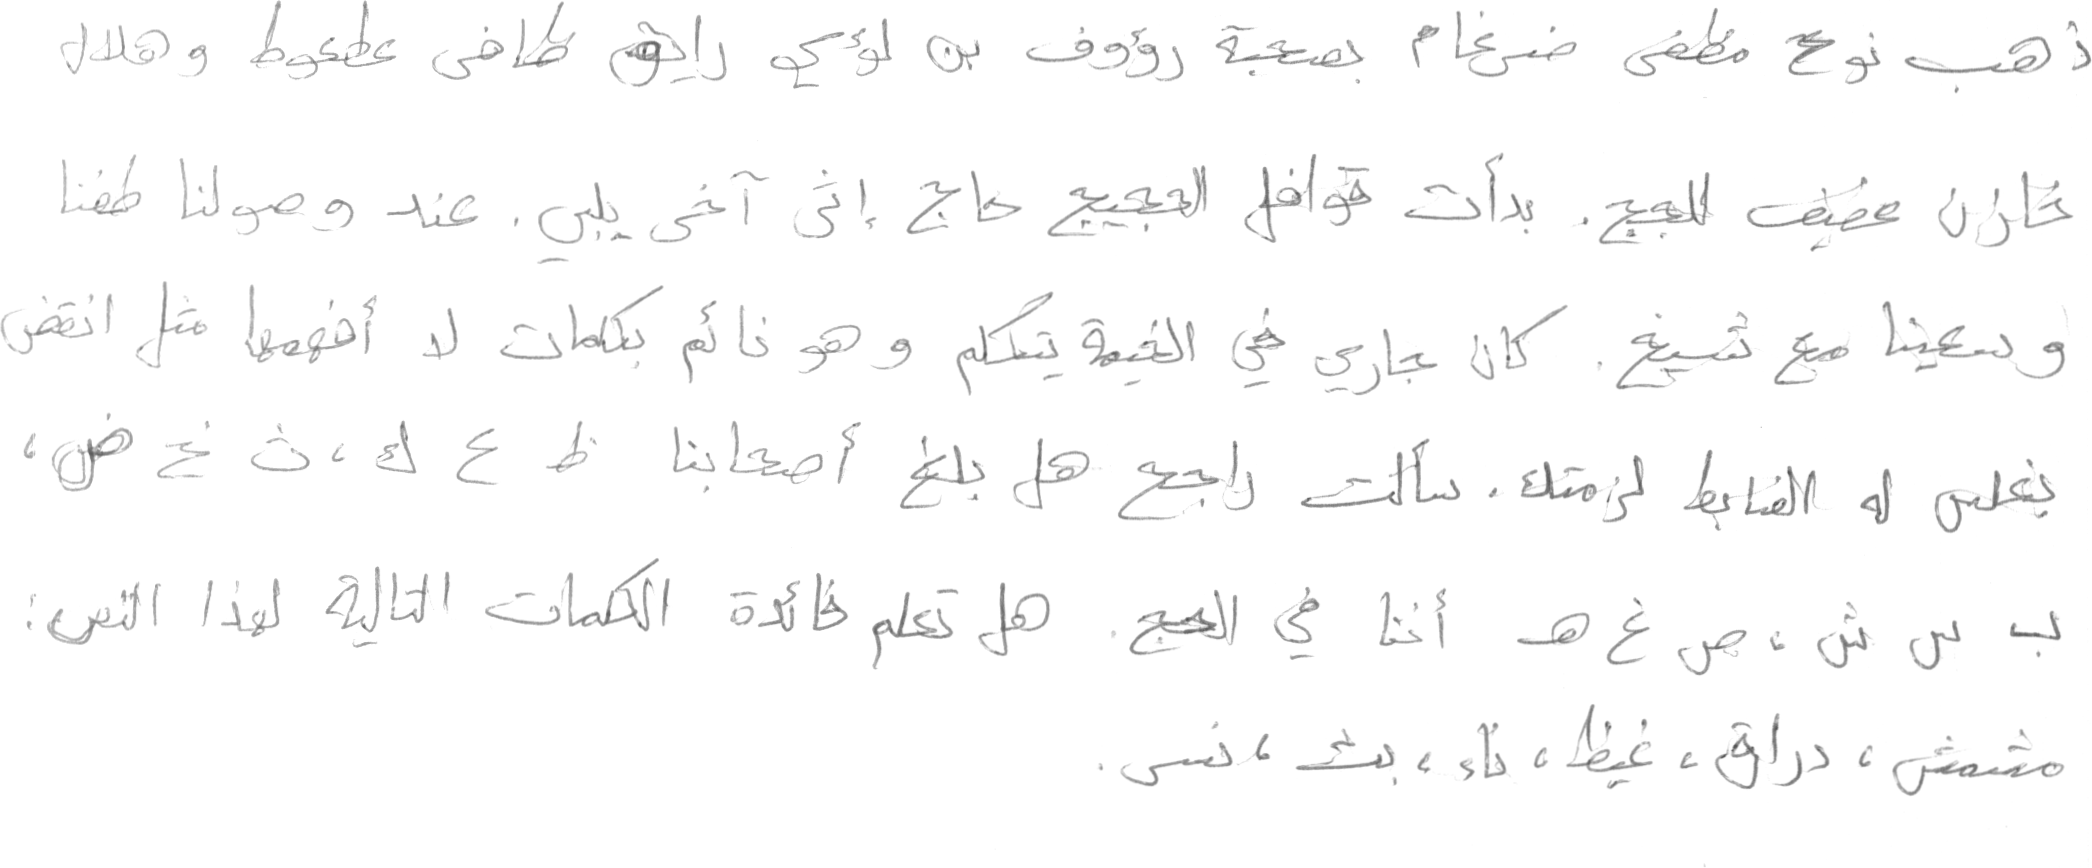 ذهب نوح مظفر ضرغام بصحبة رؤوف بن لؤي رايق ظافر عطعوط وهلال
خازن عفيف للحج. بدأت قوافل الحجيج حاج إثر آخر يلبي. عند وصولنا طفنا
وسعينا مع شيخ. كان جاري في الخيمة يتكلم وهو نائم بكلمات لا أفهمها مثل انقض
بغلس له الضابط لزمتك. سألت راجح هل بلغ أصحابنا ظ ع ك، ث خ ض،
ب س ش، ص غ هـ أننا في الحج. هل تعلم فائدة الكلمات التالية لهذا النص:
مشمش، دراق، غيظ، ناء، بث، نسر.